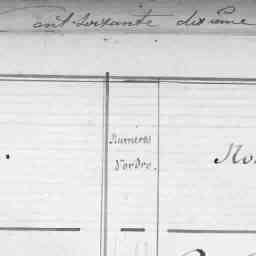 cent soixante dixième
Numéros
d'ordre.
No